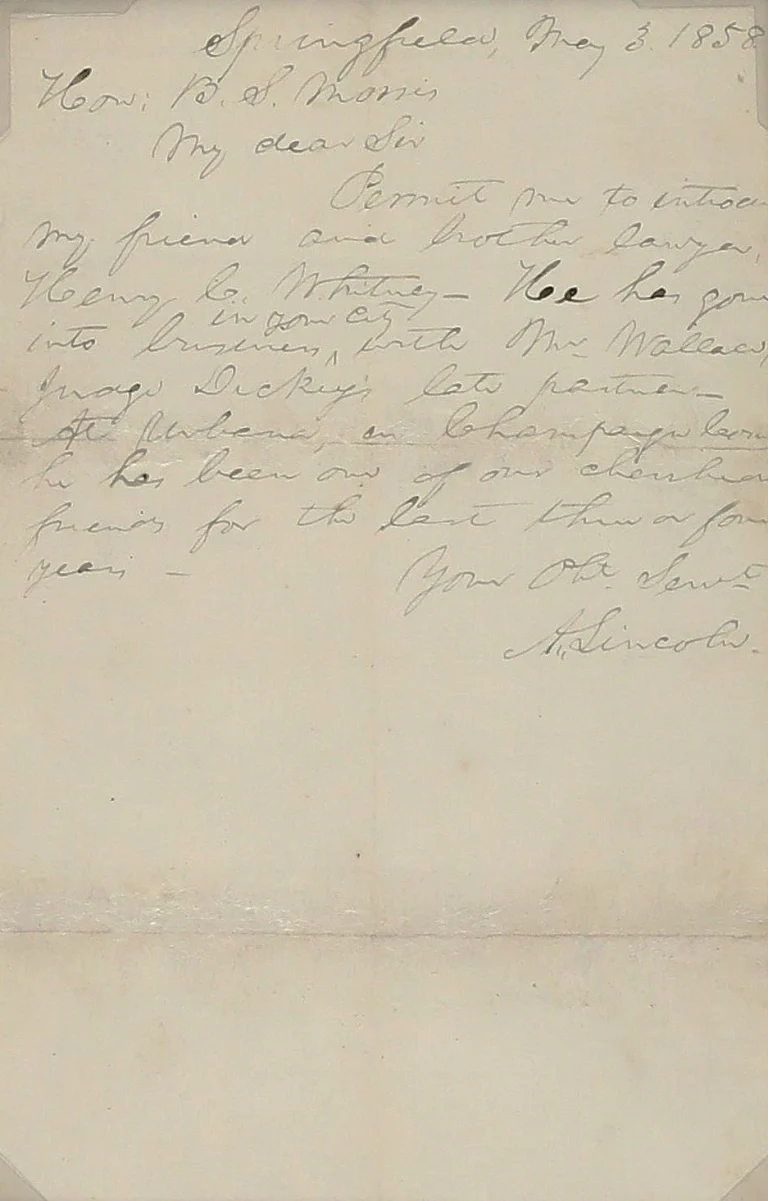 Springfield, May 3. 1858
Hon: B. S. Morris
My dear Sir
Permit me to introdu
my friend and brother lawyer,
Henry C. Whitney— He has gone
in your city
into business ^ with Mr Wallace,
Judge Dickey's late partner—
At Urbana, in Champaign Coun
he has been one of our cherished
friends for the last three or four
years —
Your Obt. Servt
A. Lincoln.